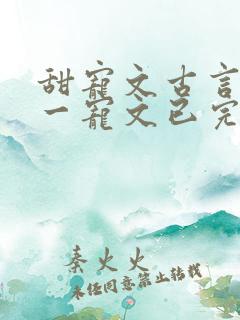 甜宠文古言
一宠文已完
秦火火
未经同意禁止转载